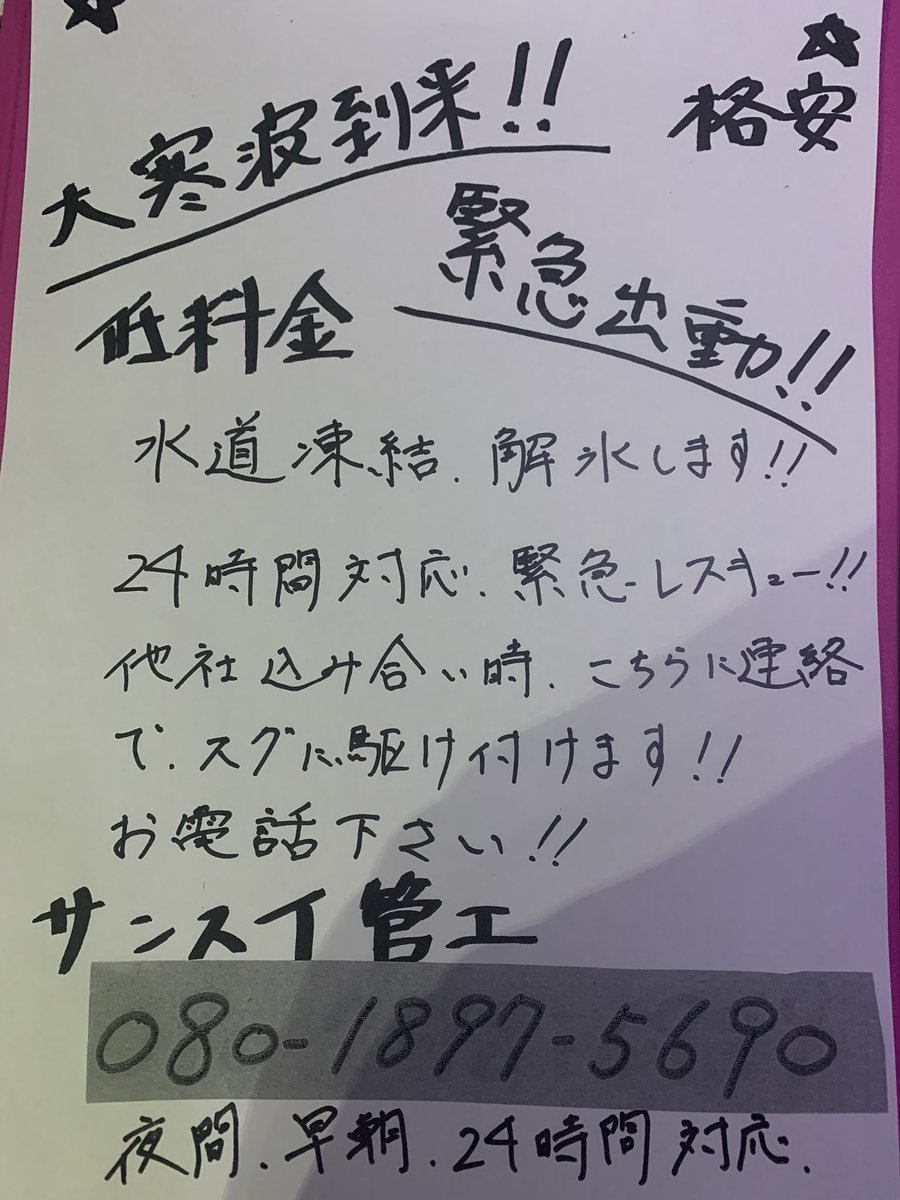 大寒波到来!!
格安
緊急出動!!
低料金
水道凍結、解氷します!!
24時間対応、緊急レスキュー!!
他社込み合い時、こちらに連絡
で、スグに駆け付けます!!
お電話下さい!!
サンスイ管工
080-1897-5690
夜間、早朝、24時間対応、